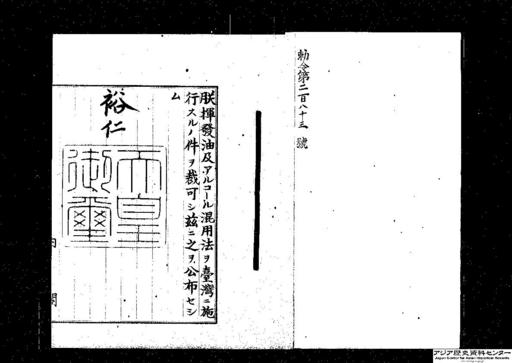 勅令第二百八十三號
朕揮發油及アルコール混用法ヲ臺灣ニ施
行スルノ件ヲ裁可シ茲ニ之ヲ公布セシ
ム
裕仁
天皇
御璽
内閣
アジア歴史資料センター
Japan Center for Asian Historical Records